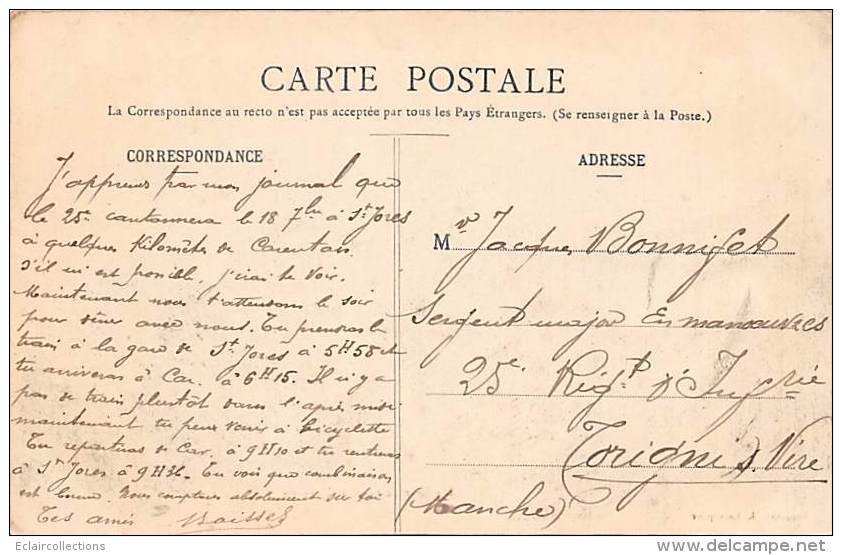 CARTE POSTALE
La Correspondance au recto n'est pas acceptée par tous les Pays Étrangers. (Se renseigner à la Poste.)
CORRESPONDANCE
J'apprends par mon journal que
le 25e cantonnera le 18 7bre à St Jores
à quelques Kilomètres de Carentan.
S'il m'est possible, j'irai te voir.
Maintenant nous t'attendons le soir
pour dîner avec nous. Tu prendras le
train à la gare de St Jores à 5H58 et
tu arriveras à Car. à 6H15. Il n'y a
pas de train plustôt dans l'après midi
maintenant tu peux venir à bicyclette
Tu repartiras de Car. à 9H10 et tu rentreras
à St Jores à 9H36. Tu vois que combinaison
est bonne. Nous comptons absolument sur toi
Tes amis
ADRESSE
Mr Jacques Bonnifet
Sergent major En manoeuvres
25e Régt d'Infrie
Torigni s. Vire
(Manche)
Eclaircollections
delcampe.net